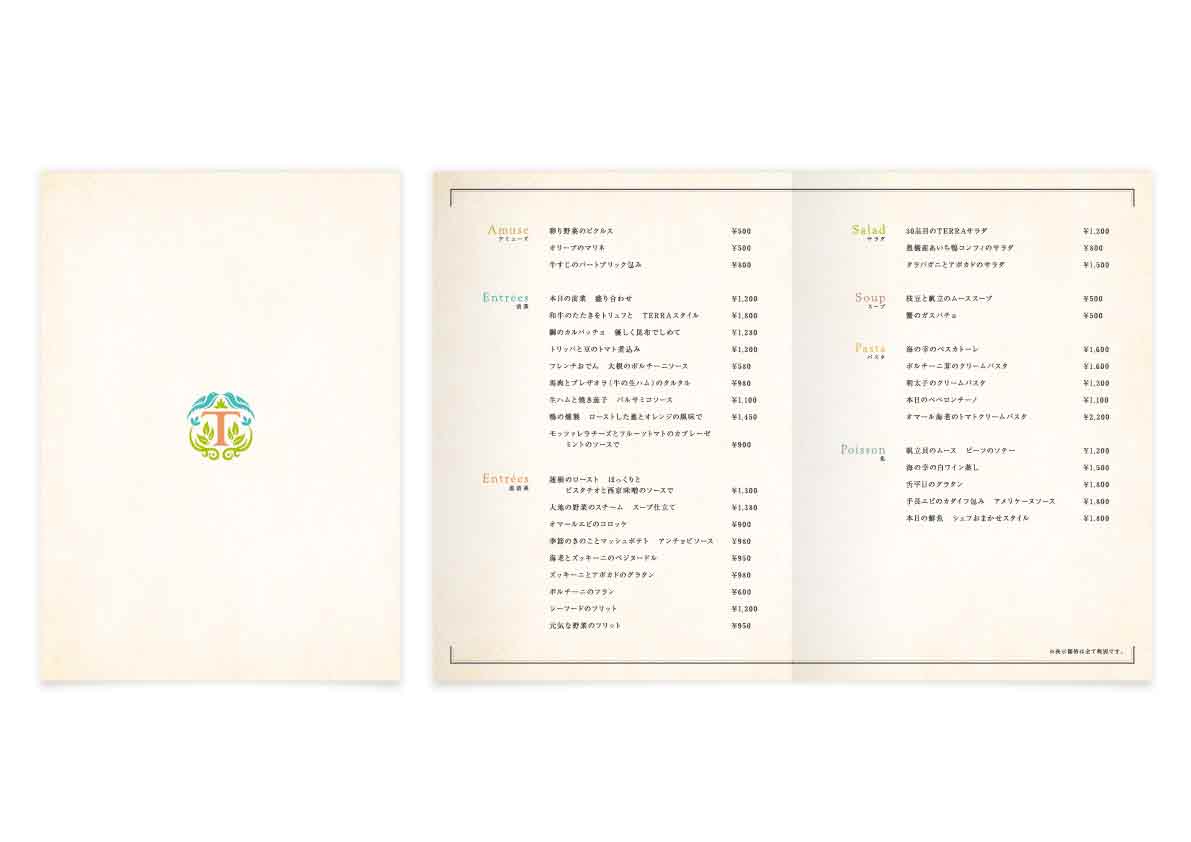 T
Amuse
アミューズ
彩り野菜のピクルス ¥500
オリーブのマリネ ¥500
牛すじのパートブリック包み ¥800
Entrées
前菜
本日の前菜 盛り合わせ ¥1,200
和牛のたたきをトリュフと TERRAスタイル ¥1,800
鯛のカルパッチョ 優しく昆布でしめて ¥1,280
トリッパと豆のトマト煮込み ¥1,300
フレンチおでん 大根のポルチーニソース ¥580
馬肉とブレザオラ（牛の生ハム）のタルタル ¥980
生ハムと焼き茄子 バルサミコソース ¥1,100
鴨の燻製 ローストした葱とオレンジの風味で ¥1,450
モッツァレラチーズとフルーツトマトのカプレーゼ
ミントのソースで ¥900
Entrées
温前菜
蓮根のロースト ほっくりと
ピスタチオと西京味噌のソースで ¥1,300
大地の野菜のスチーム スープ仕立て ¥1,380
オマールエビのコロッケ ¥900
季節のきのことマッシュポテト アンチョビソース ¥980
海老とズッキーニのベジヌードル ¥950
ズッキーニとアボカドのグラタン ¥980
ポルチーニのフラン ¥600
シーフードのフリット ¥1,200
元気な野菜のフリット ¥950
Salad
サラダ
30品目のTERRAサラダ ¥1,200
豊橋産あいち鴨コンフィのサラダ ¥800
タラバガニとアボカドのサラダ ¥1,500
Soup
スープ
枝豆と帆立のムーススープ ¥500
蟹のガスパチョ ¥500
Pasta
パスタ
海の幸のペスカトーレ ¥1,600
ポルチーニ茸のクリームパスタ ¥1,600
明太子のクリームパスタ ¥1,300
本日のペペロンチーノ ¥1,100
オマール海老のトマトクリームパスタ ¥2,200
Poisson
魚
帆立貝のムース ビーフのソテー ¥1,200
海の幸の白ワイン蒸し ¥1,500
舌平目のグラタン ¥1,800
手長エビのカダイフ包み アメリケーヌソース ¥1,800
本日の鮮魚 シェフおまかせスタイル ¥1,800
※表示価格は全て税別です。